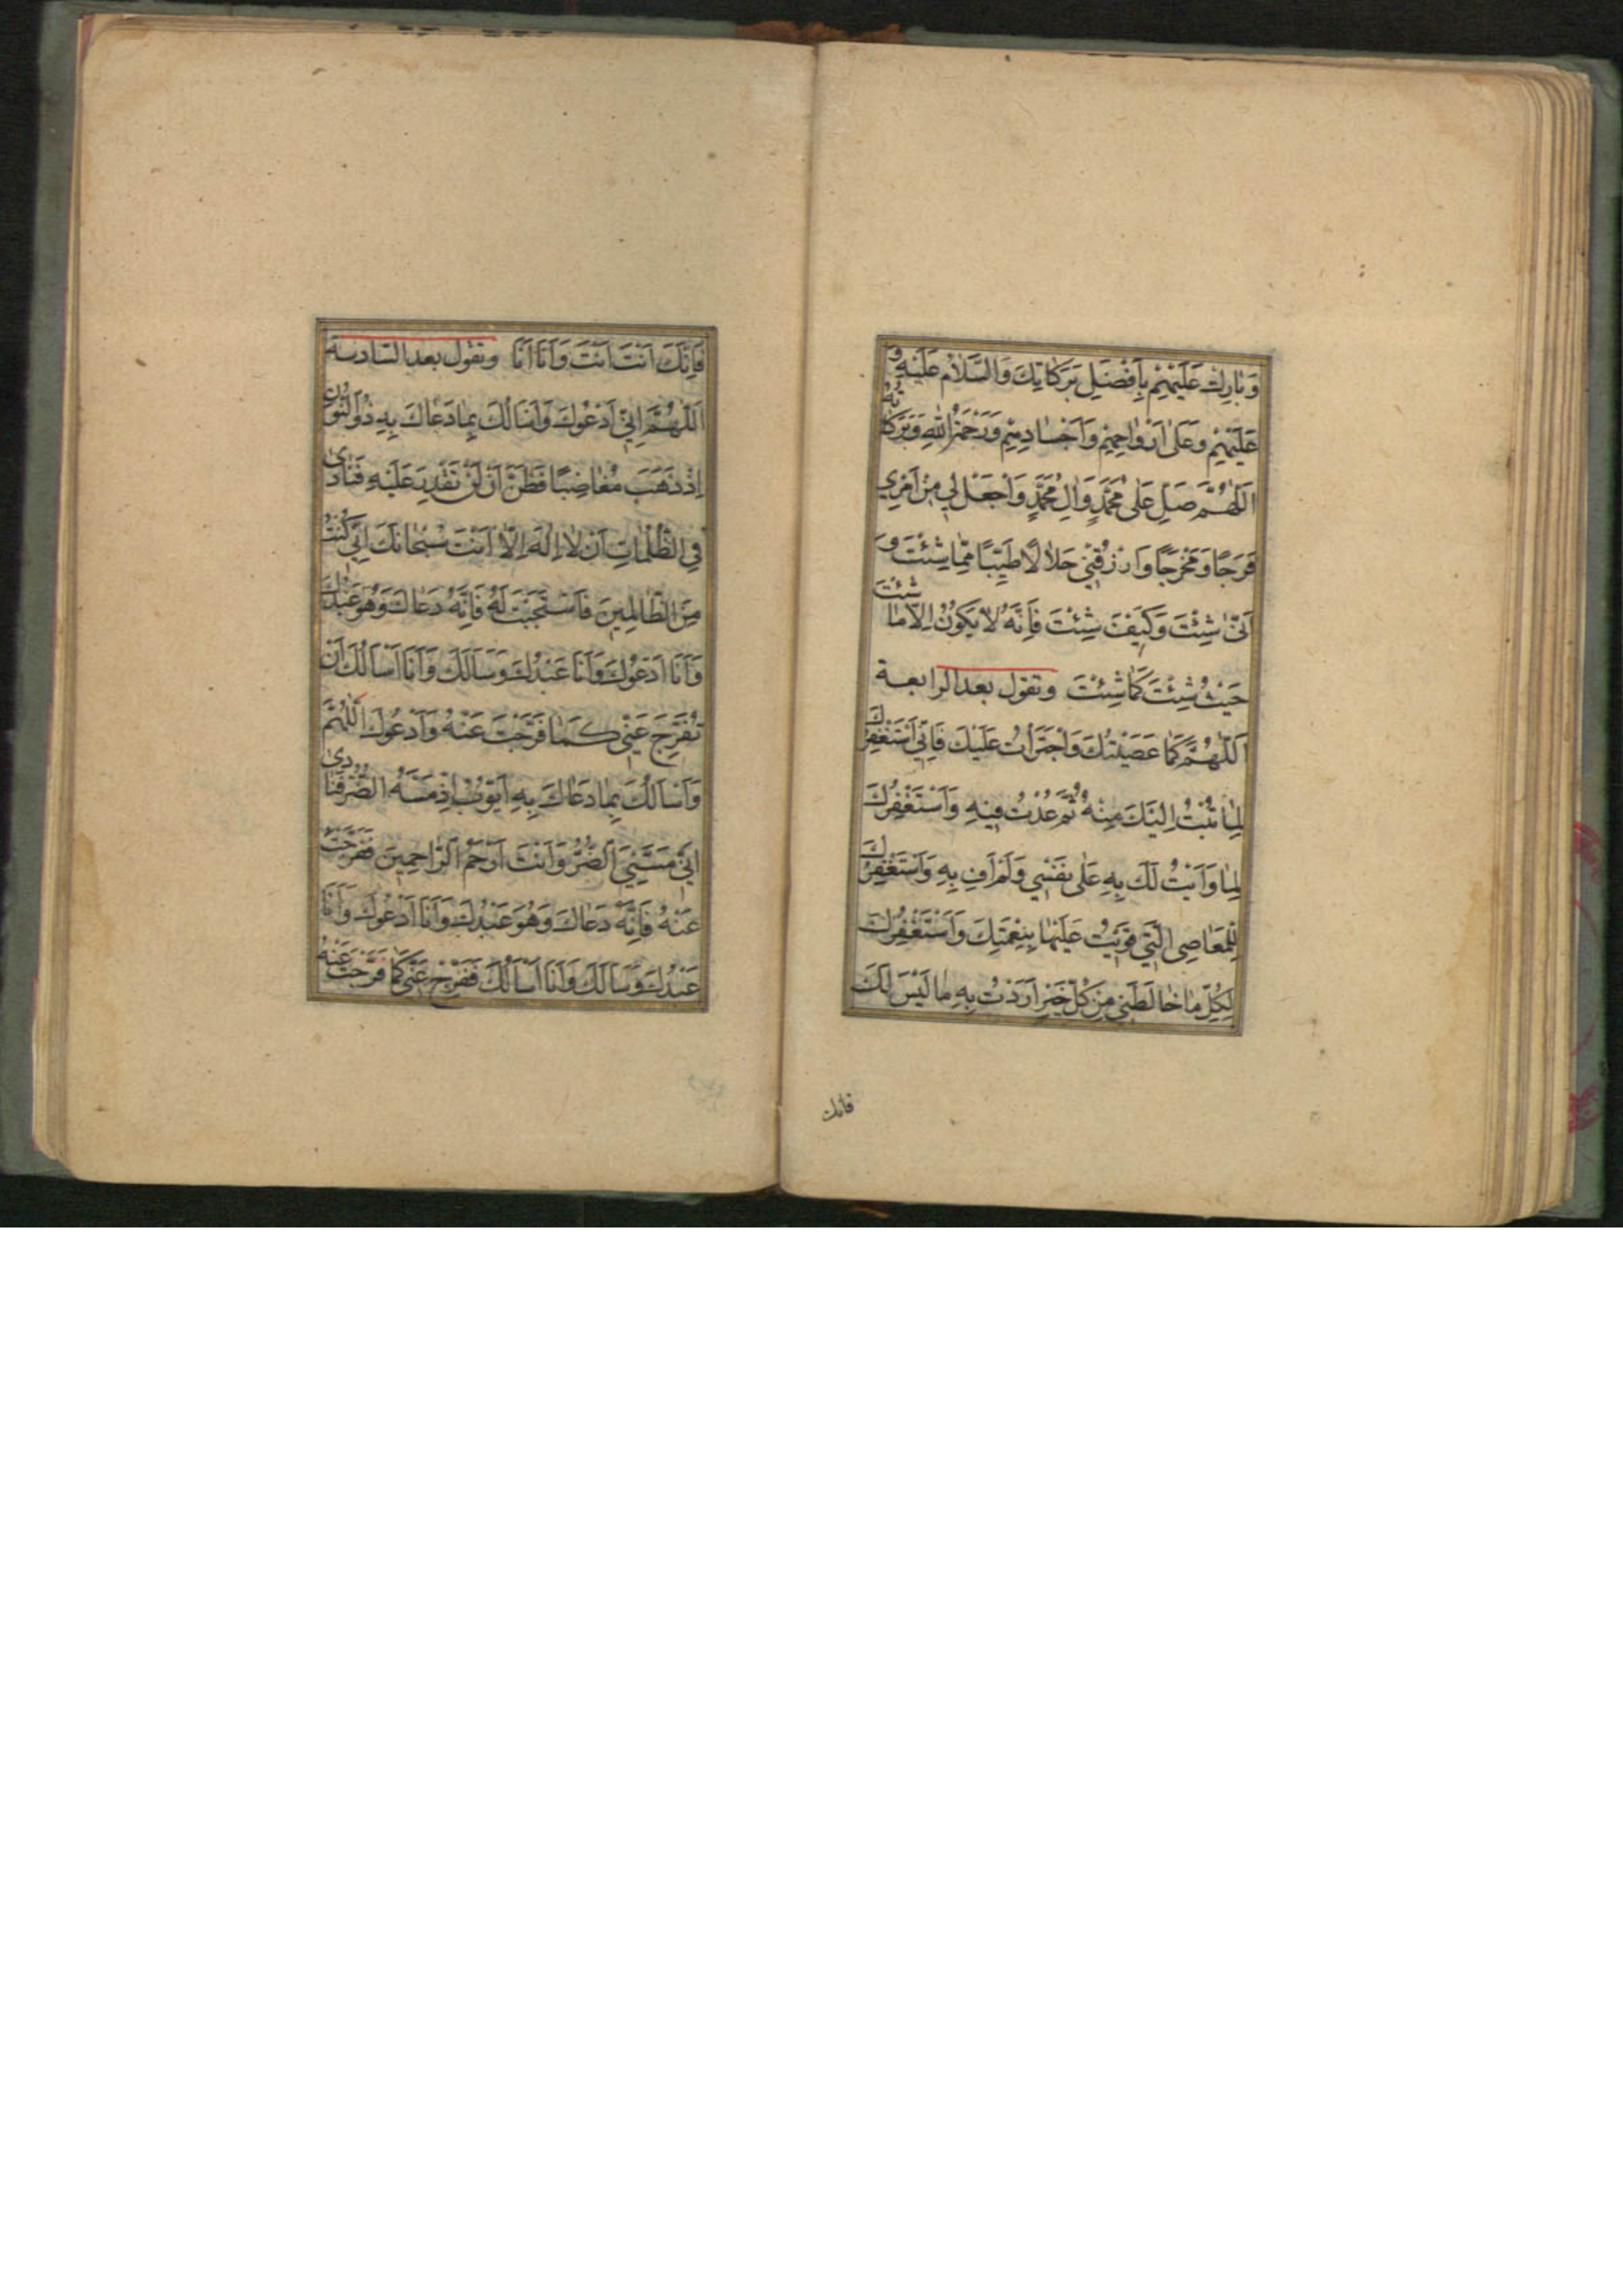 وَبٰارِكْ عَلَيْهِمْ بِاَفْضَلِ بَرَكٰاتِكَ وَالسَّلاٰمُ عَلَيْهِ وَ
عَلَيْهِمْ وَعَلىٰ اَرْوٰاحِهِمْ وَاَجْسٰادِهِمْ وَرَحْمَةُ اللّٰهِ وَبَرَكٰاتُهُ
اَللّٰهُمَّ صَلِّ عَلىٰ مُحَمَّدٍ وَاٰلِ مُحَمَّدٍ وَاجْعَلْ لِي مِنْ اَمْرِي
فَرَجًا وَمَخْرَجًا وَارْزُقْنِي حَلاٰلًا طَيِّبًا مِمّٰا شِئْتَ وَ
اَنّٰى شِئْتَ وَكَيْفَ شِئْتَ فَاِنَّهُ لاٰ يَكُونُ اِلاّٰ مٰا شِئْتَ
حَيْثُ شِئْتَ كَمٰا شِئْتَ وتقول بعد الرابعة
اَللّٰهُمَّ كَمٰا عَصَيْتُكَ وَاجْتَرَأْتُ عَلَيْكَ فَاِنِّي اَسْتَغْفِرُكَ
لِمٰا تُبْتُ اِلَيْكَ مِنْهُ ثُمَّ عُدْتُ فِيهِ وَاَسْتَغْفِرُكَ
لِمٰا وَاَيْتُ لَكَ بِهِ عَلىٰ نَفْسِي وَلَمْ اَفِ بِهِ وَاَسْتَغْفِرُكَ
لِلْمَعٰاصِي الَّتِي قَوِيْتُ عَلَيْهٰا بِنِعْمَتِكَ وَاَسْتَغْفِرُكَ
لِكُلِّ مٰا خٰالَطَنِي مِنْ كُلِّ خَيْرٍ اَرَدْتُ بِهِ مٰا لَيْسَ لَكَ
فانك
فَاِنَّكَ اَنْتَ اَنْتَ وَاَنَا اَنَا وتقول بعد السادسة
اَللّٰهُمَّ اِنِّي اَدْعُوكَ وَاَسْاَلُكَ بِمٰا دَعٰاكَ بِهِ ذُو النُّونِ
اِذْ ذَهَبَ مُغٰاضِبًا فَظَنَّ اَنْ لَنْ نَقْدِرَ عَلَيْهِ فَنٰادىٰ
فِي الظُّلُمٰاتِ اَنْ لاٰ اِلٰهَ اِلاّٰ اَنْتَ سُبْحٰانَكَ اِنِّي كُنْتُ
مِنَ الظّٰالِمِينَ فَاسْتَجَبْتَ لَهُ فَاِنَّهُ دَعٰاكَ وَهُوَ عَبْدُكَ
وَاَنَا اَدْعُوكَ وَاَنَا عَبْدُكَ وَسَاَلَكَ وَاَنَا اَسْاَلُكَ اَنْ
تُفَرِّجَ عَنِّي كَمٰا فَرَّجْتَ عَنْهُ وَاَدْعُوكَ اَللّٰهُمَّ
وَاَسْاَلُكَ بِمٰا دَعٰاكَ بِهِ اَيُّوبُ اِذْ مَسَّهُ الضُّرُّ فَنٰادىٰ
اِنِّي مَسَّنِيَ الضُّرُّ وَاَنْتَ اَرْحَمُ الرّٰاحِمِينَ فَفَرَّجْتَ
عَنْهُ فَاِنَّهُ دَعٰاكَ وَهُوَ عَبْدُكَ وَاَنَا اَدْعُوكَ وَاَنَا
عَبْدُكَ وَسَاَلَكَ وَاَنَا اَسْاَلُكَ فَفَرِّجْ عَنِّي كَمٰا فَرَّجْتَ عَنْهُ